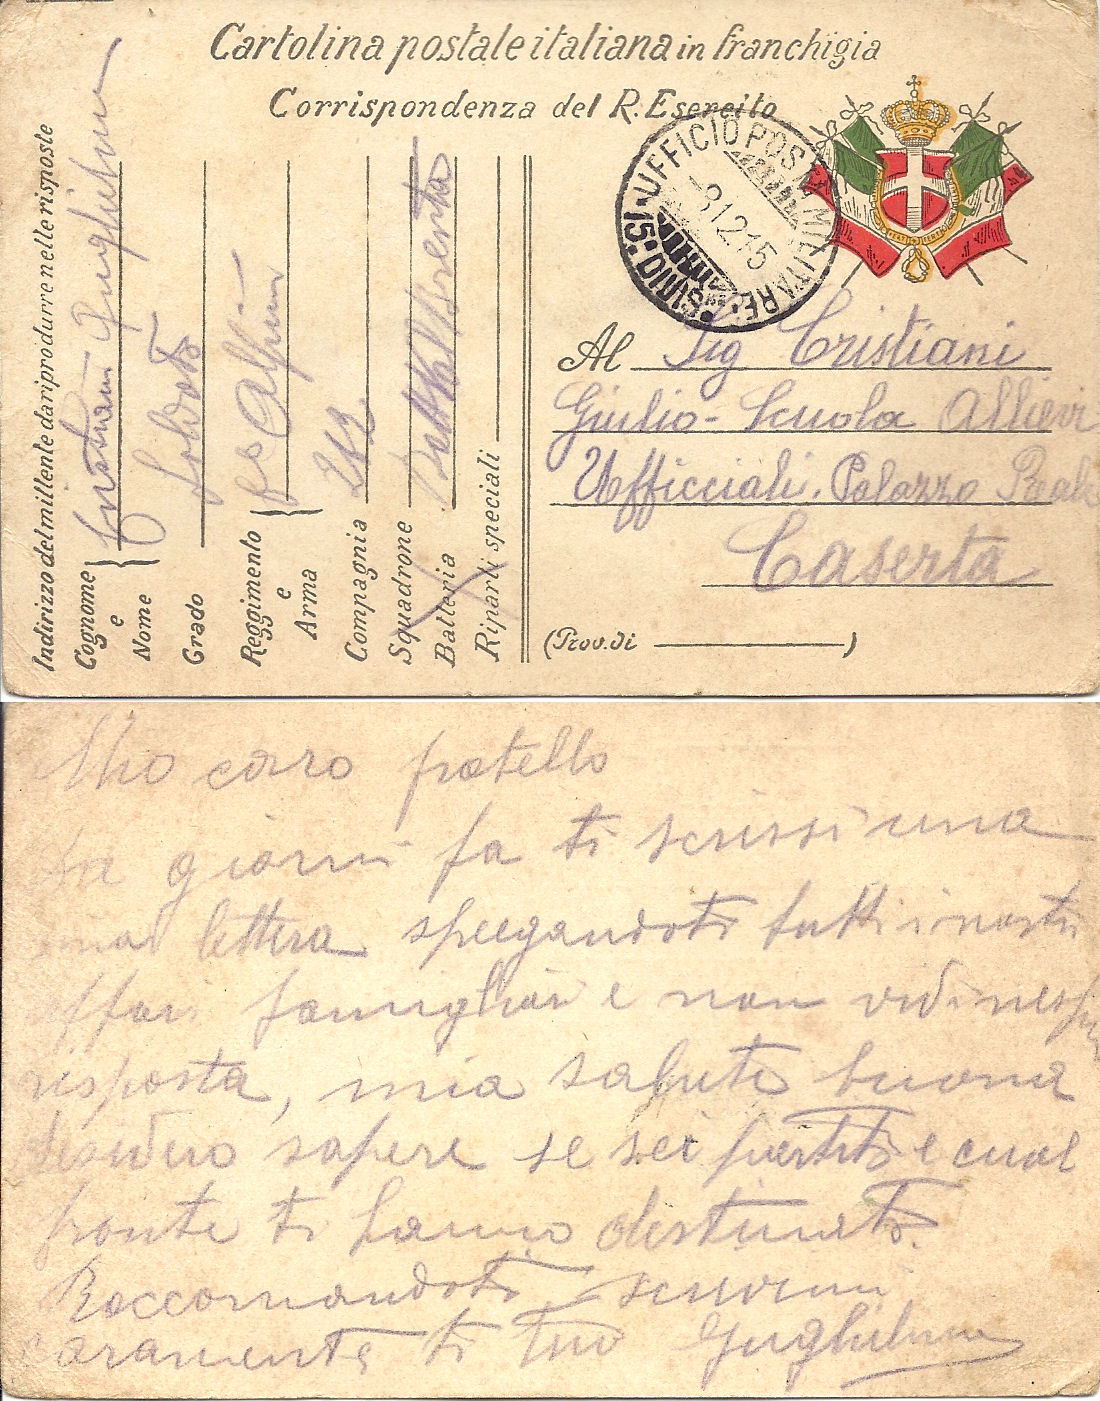 Cartolina postale italiana in franchigia
Corrispondenza del R. Esercito
Indirizzo del mittente da riprodurre nelle risposte
Cognome e Nome
Cristiani Guglielmo
Grado
Soldato
Reggimento e Arma
Alpini
Compagnia
Squadrone
Batteria
Riparti speciali
UFFICIO POSTA MILITARE
12 15
15
Al Sig Cristiani
Giulio - Scuola Allievi
Ufficciali. Palazzo Reale
Caserta
(Prov. di )
Mio caro fratello
giorni fa ti scrissi una
mia lettera spiegandoti tutti i nostri
affari famigliari e non vidi
risposta, mia salute buona
desidero sapere se sei partito e cual
fronte ti hanno destinato.
Raccomandoti
caramente ti tuo Guglielmo